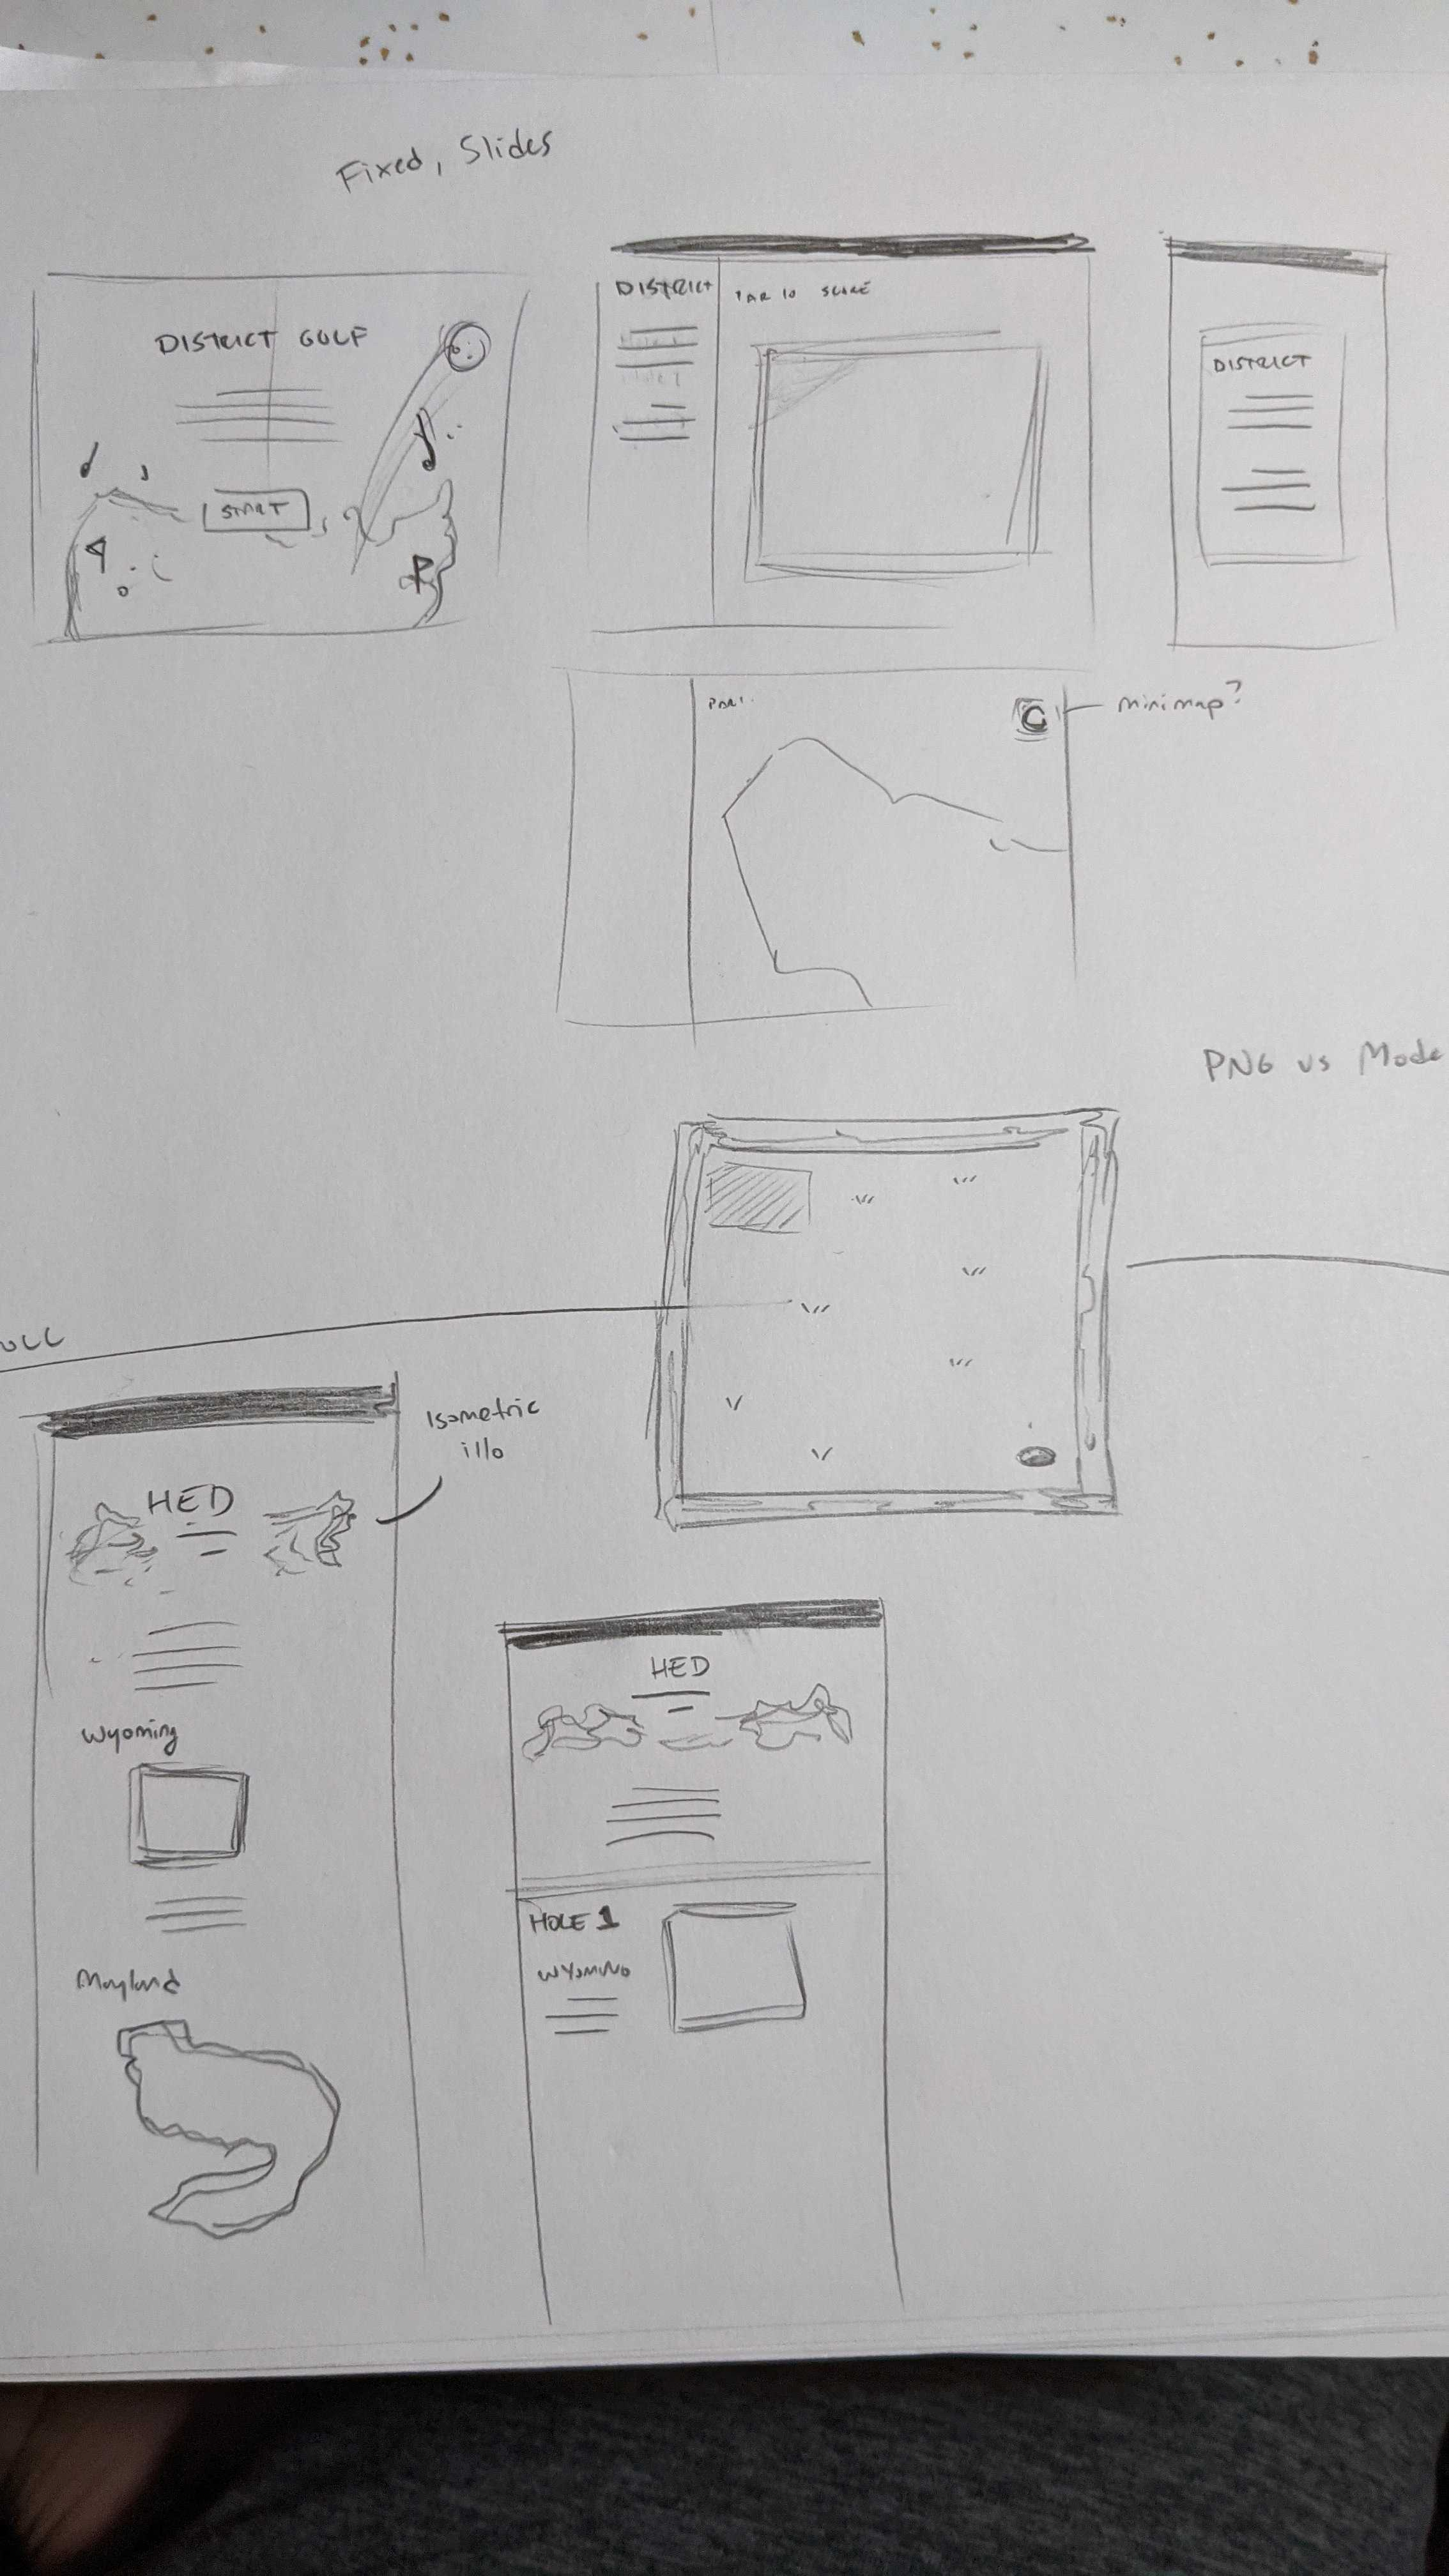 Fixed, Slides
DISTRICT GOLF
START
DISTRICT
PAR 10 SCORE
DISTRICT
PAR
minimap?
PNG vs Mode
Isometric
illo
HED
Wyoming
Maryland
HED
HOLE 1
WYOMING